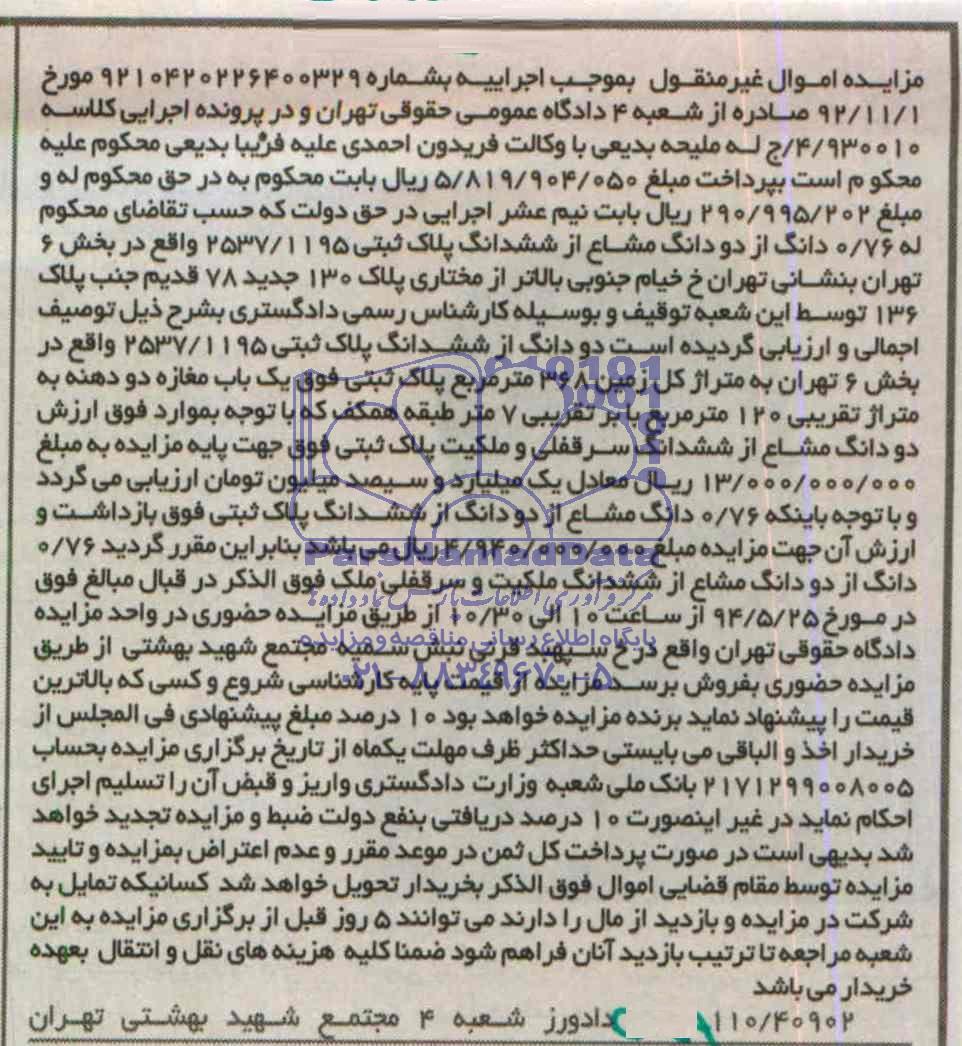 مزایده اموال غیرمنقول بموجب اجراییه بشماره ۹۲۱۰۴۲۰۲۲۶۴۰۰۳۲۹ مورخ
۹۲/۱۱/۱ صادره از شعبه ۴ دادگاه عمومی حقوقی تهران و در پرونده اجرایی کلاسه
۴/۹۳۰۰۱۰/ج له ملیحه بدیعی با وکالت فریدون احمدی علیه فریبا بدیعی محکوم علیه
محکو م است بپرداخت مبلغ ۵/۸۱۹/۹۰۴/۰۵۰ ریال بابت محکوم به در حق محکوم له و
مبلغ ۲۹۰/۹۹۵/۲۰۲ ریال بابت نیم عشر اجرایی در حق دولت که حسب تقاضای محکوم
له ۰/۷۶ دانگ از دو دانگ مشاع از ششدانگ پلاک ثبتی ۲۵۳۷/۱۱۹۵ واقع در بخش ۶
تهران بنشانی تهران خ خیام جنوبی بالاتر از مختاری پلاک ۱۳۰ جدید ۷۸ قدیم جنب پلاک
۱۳۶ توسط این شعبه توقیف و بوسیله کارشناس رسمی دادگستری بشرح ذیل توصیف
اجمالی و ارزیابی گردیده است دو دانگ از ششدانگ پلاک ثبتی ۲۵۳۷/۱۱۹۵ واقع در
بخش ۶ تهران به متراژ کل زمین ۳۶۸ مترمربع پلاک ثبتی فوق یک باب مغازه دو دهنه به
متراژ تقریبی ۱۲۰ مترمربع با بر تقریبی ۷ متر طبقه همکف که با توجه بموارد فوق ارزش
دو دانگ مشاع از ششدانگ سرقفلی و ملکیت پلاک ثبتی فوق جهت پایه مزایده به مبلغ
۱۳/۰۰۰/۰۰۰/۰۰۰ ریال معادل یک میلیارد و سیصد میلیون تومان ارزیابی می گردد
و با توجه باینکه ۰/۷۶ دانگ مشاع از دو دانگ از ششدانگ پلاک ثبتی فوق بازداشت و
ارزش آن جهت مزایده مبلغ ۴/۹۴۰/۰۰۰/۰۰۰ ریال می باشد بنابراین مقرر گردید ۰/۷۶
دانگ از دو دانگ مشاع از ششدانگ ملکیت و سرقفلی ملک فوق الذکر در قبال مبالغ فوق
در مورخ ۹۴/۵/۲۵ از ساعت ۱۰ الی ۱۰/۳۰ از طریق مزایده حضوری در واحد مزایده
دادگاه حقوقی تهران واقع در خ سپهبد قرنی نبش سمیه مجتمع شهید بهشتی از طریق
مزایده حضوری بفروش برسد مزایده از قیمت پایه کارشناسی شروع و کسی که بالاترین
قیمت را پیشنهاد نماید برنده مزایده خواهد بود ۱۰ درصد مبلغ پیشنهادی فی المجلس از
خریدار اخذ و الباقی می بایستی حداکثر ظرف مهلت یکماه از تاریخ برگزاری مزایده بحساب
۲۱۷۱۲۹۹۰۰۸۰۰۵ بانک ملی شعبه وزارت دادگستری واریز و قبض آن را تسلیم اجرای
احکام نماید در غیر اینصورت ۱۰ درصد دریافتی بنفع دولت ضبط و مزایده تجدید خواهد
شد بدیهی است در صورت پرداخت کل ثمن در موعد مقرر و عدم اعتراض بمزایده و تایید
مزایده توسط مقام قضایی اموال فوق الذکر بخریدار تحویل خواهد شد کسانیکه تمایل به
شرکت در مزایده و بازدید از مال را دارند می توانند ۵ روز قبل از برگزاری مزایده به این
شعبه مراجعه تا ترتیب بازدید آنان فراهم شود ضمنا کلیه هزینه های نقل و انتقال بعهده
خریدار می باشد
۱۱۰/۴۰۹۰۲ دادورز شعبه ۴ مجتمع شهید بهشتی تهران
ParsnamadData
پایگاه اطلاع رسانی مناقصه و مزایده
۰۲۱-۸۸۳۴۹۶۷۰-۵